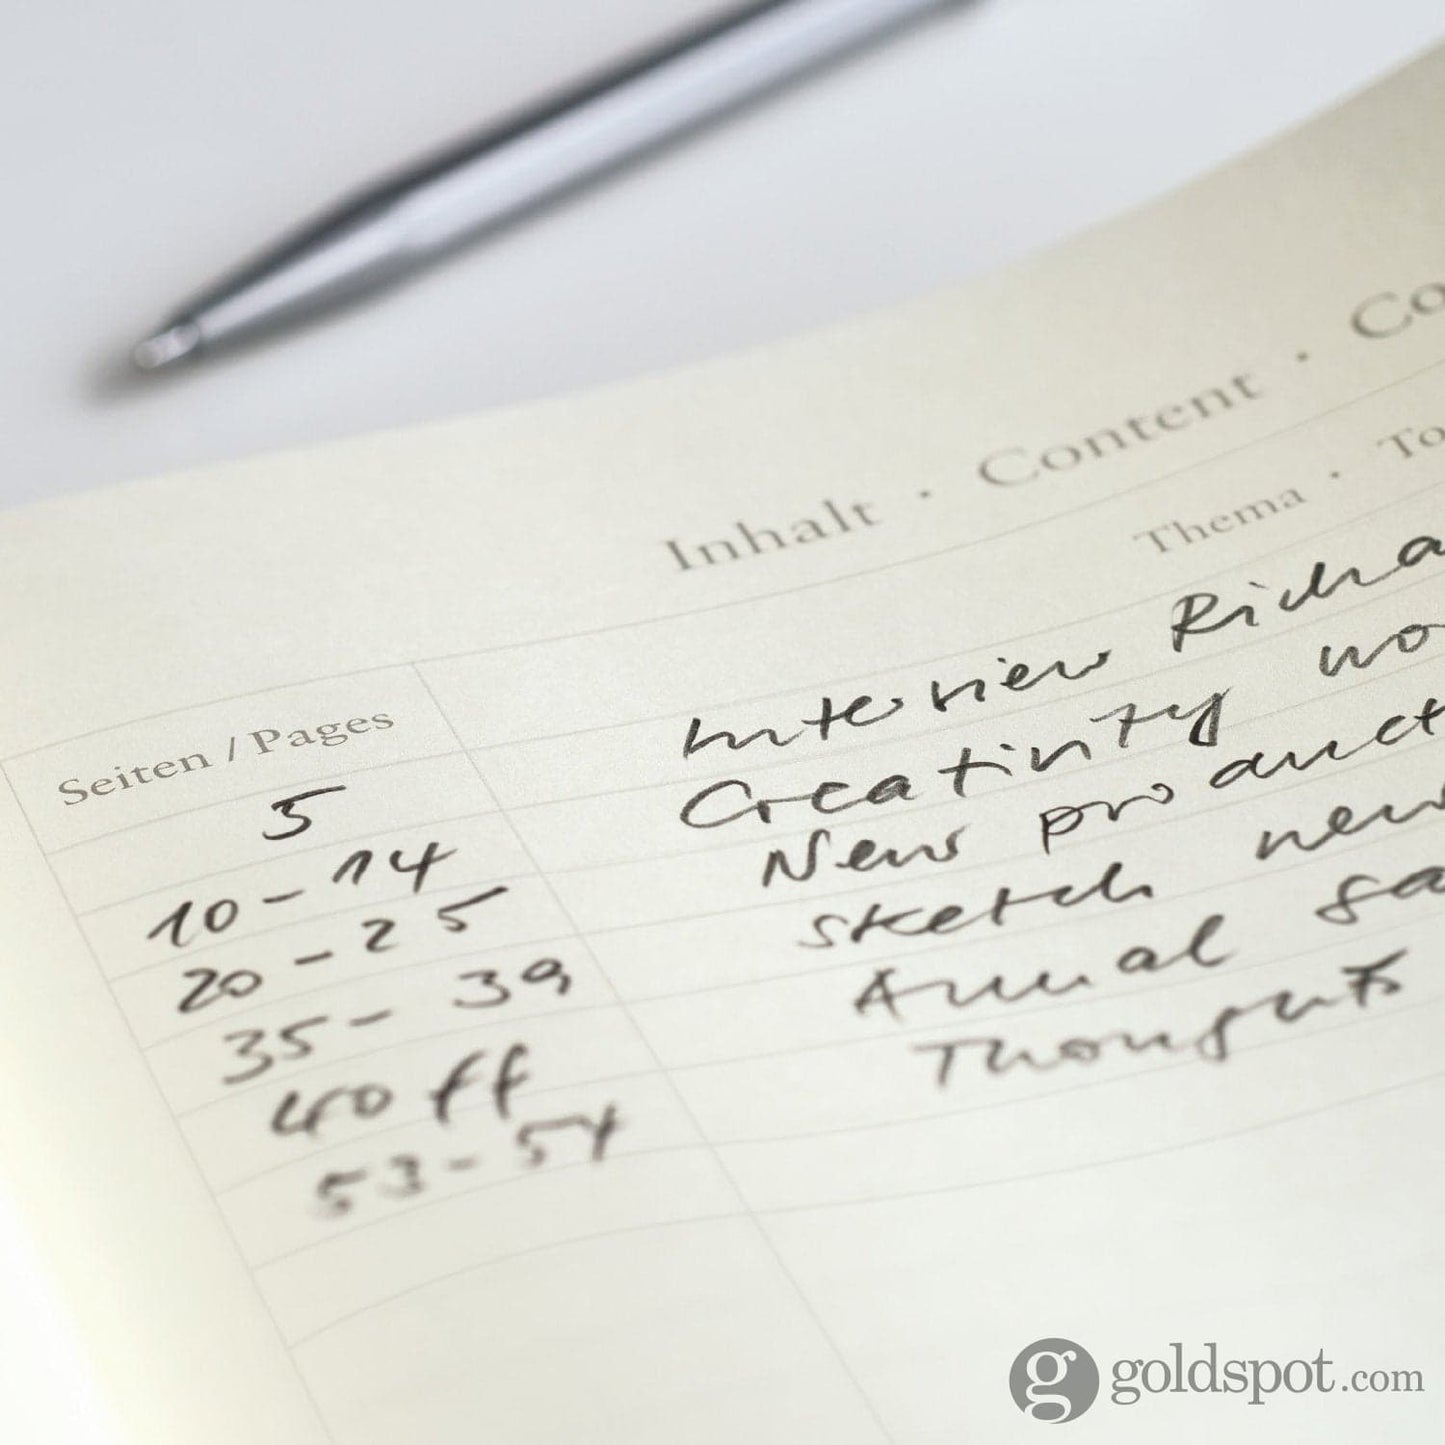 Inhalt · Content · Co
Seiten / Pages Thema · To
5 Interview Richa
10 - 14 Creativity wo
20 - 25 New product
35 - 39 sketch new
40 ff Annual sa
53 - 54 Thoughts
goldspot.com